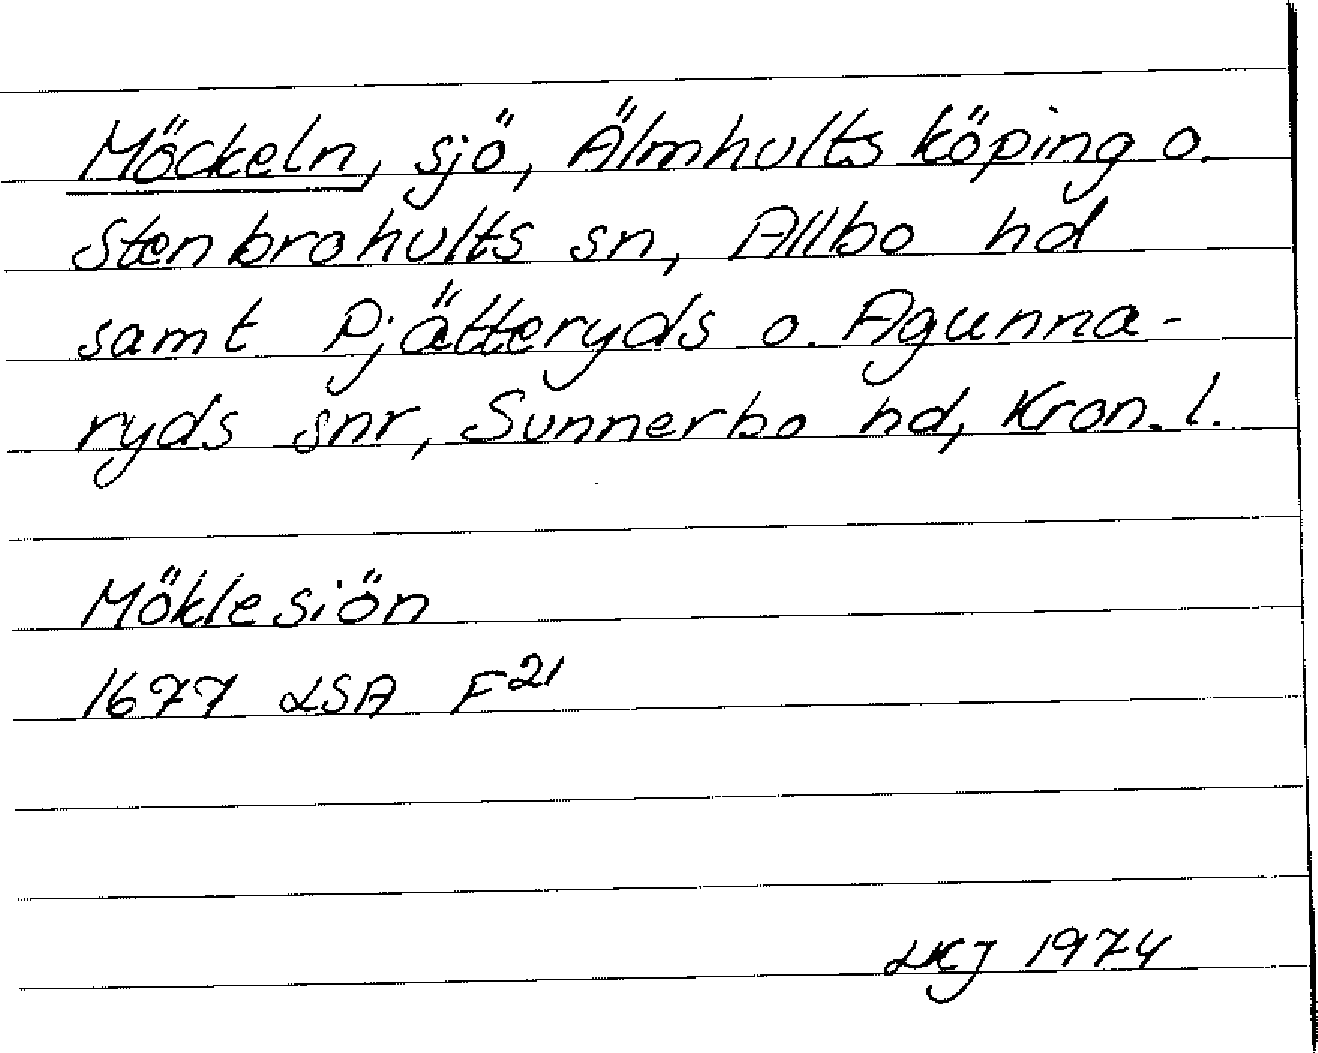 Möckeln, sjö, Älmhults köping o.
Stenbrohults sn, Allbo hd
samt Pjätteryds o. Agunna-
ryds snr, Sunnerbo hd, Kron. l.
Möklesiön
1677 LSA F21
LKJ 1974